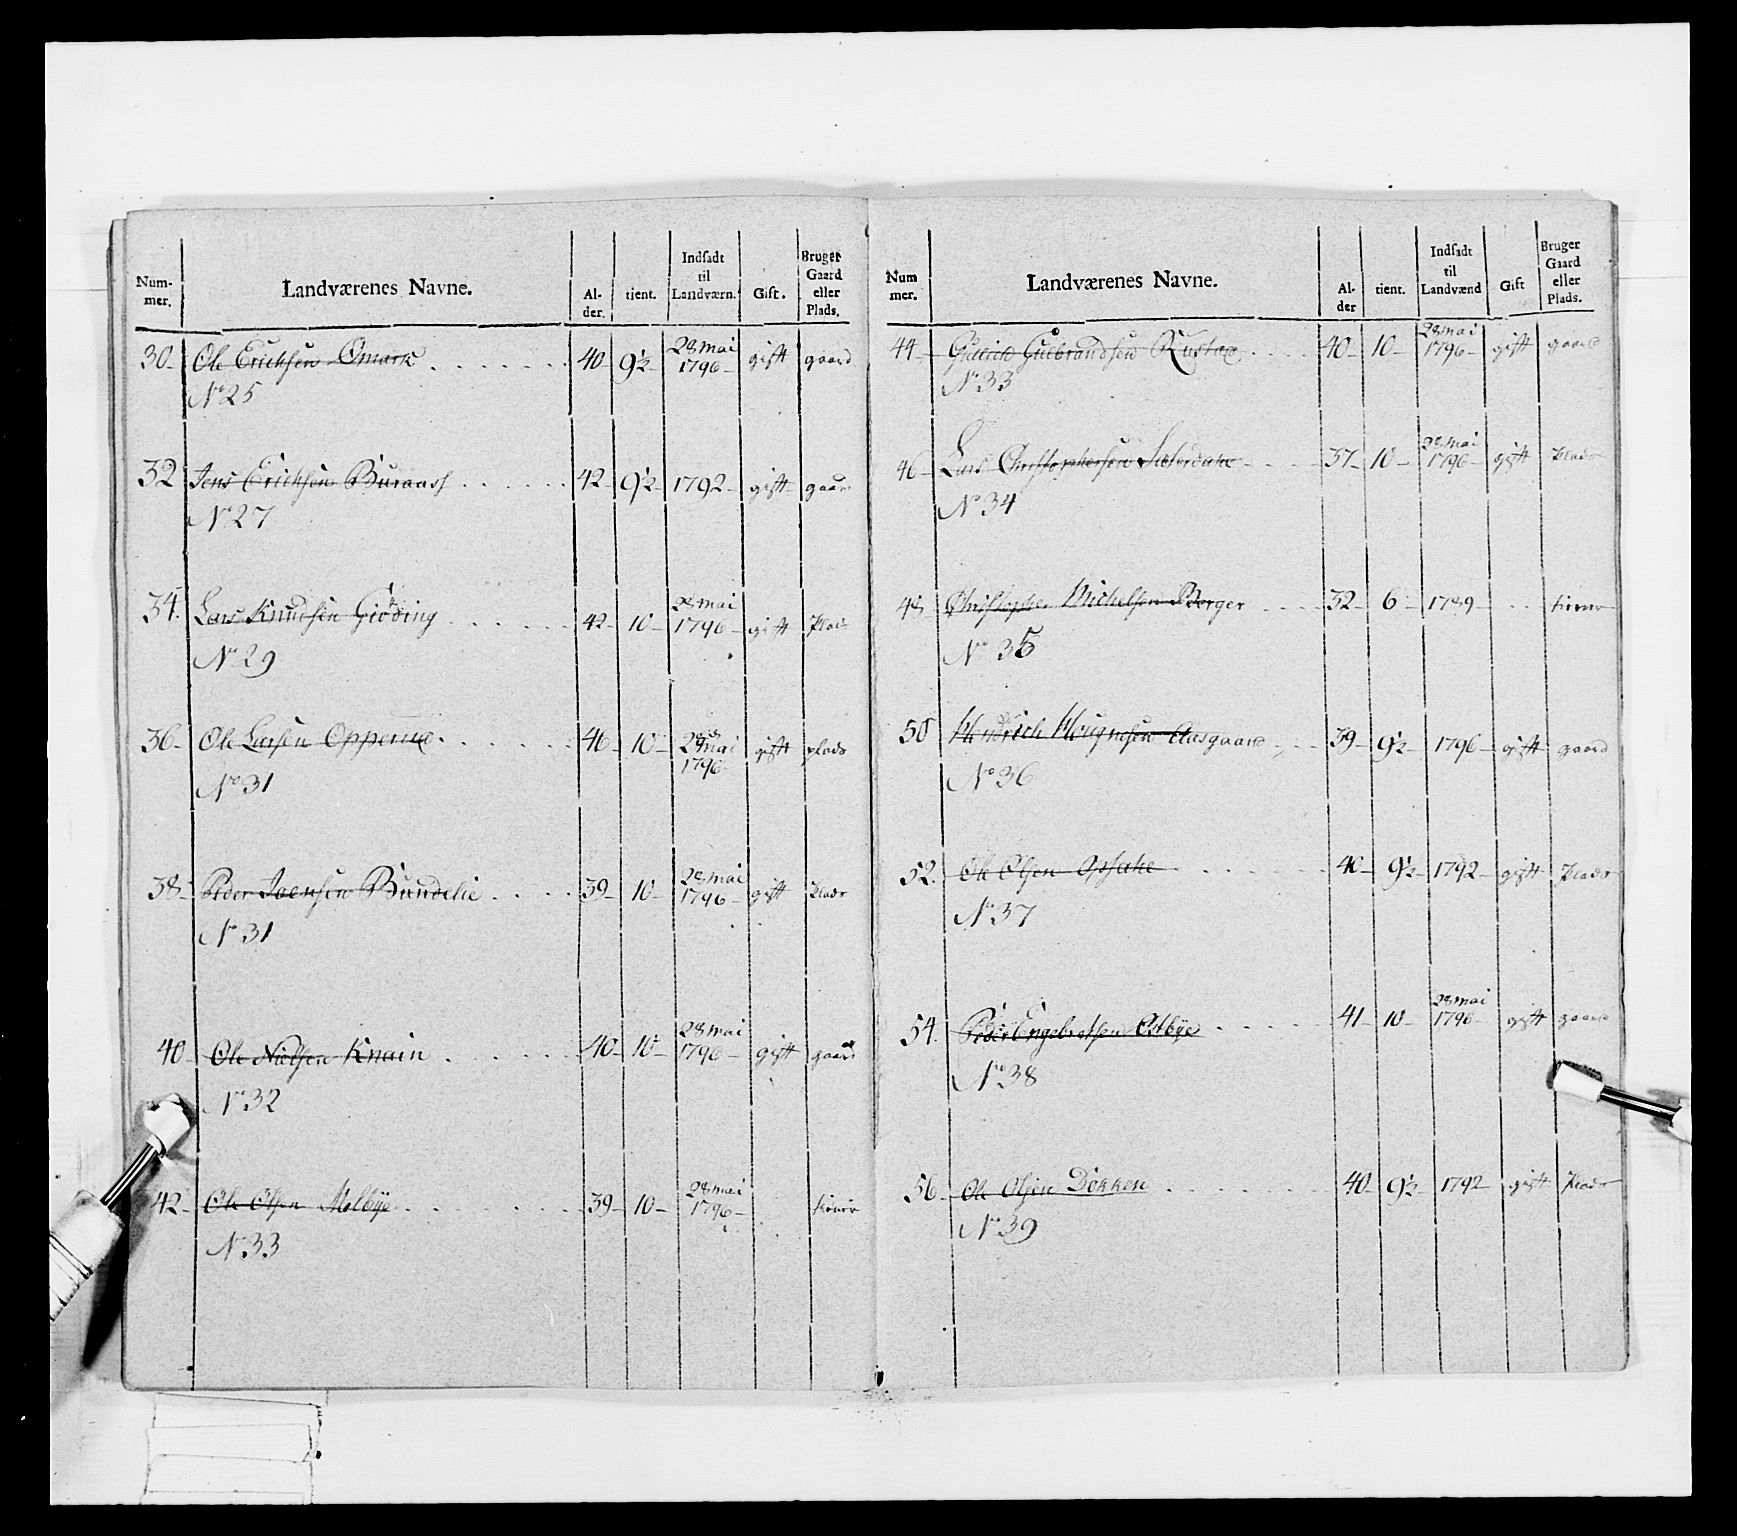 Num-
mer.
Landværenes Navne.
Al-
der.
tient.
Indsadt
til
Landværn.
Gift.
Bruger
Gaard
eller
Plads.
30 Ole Ericksen Omark 40 9½ 28 Mai 1796 gift gaard
No 25
32 Jens Ericksen Buraas 42 9½ 1792 gift gaard
No 27
34. Lars Knudsen Giöding 42 10 28 Mai 1796 gift Plads
No 29
36 Ole Larsen Opperud 46 10 28 Mai 1796 gift plads
No 31
38 Peder Iversen Bundelie 39 10 28 Mai 1796 gift Plads
No 31
40 Ole Nielsen Knain 40 10 28 Mai 1796 gift gaard
No 32
42 Ole Olsen Melbye 39 10 28 Mai 1796 tiener
No 33
Num
mer.
Landværenes Navne.
Al-
der
tient.
Indsadt
til
Landvænd
Gift
Bruger
Gaard
eller
Plads.
44 Gulbrandsen Rustad 40 10 28 Mai 1796 gift gaard
No 33
46 Lars Christophersen 37 10 28 Mai 1796 gift Plads
No 34
48 Christopher Michelsen Berger 32 6 1789 tiener
No 35
50 Aasgaard 39 9½ 1796 gift gaard
No 36
52. Ole Olsen Opsahe 40 9½ 1792 gift Plads
No 37
54. Peder Engebretsen Østbye 41 10 28 Mai 1796 gift gaard
No 38
56 Ole Olsen Dokken 40 9½ 1792 gift Plads
No 39